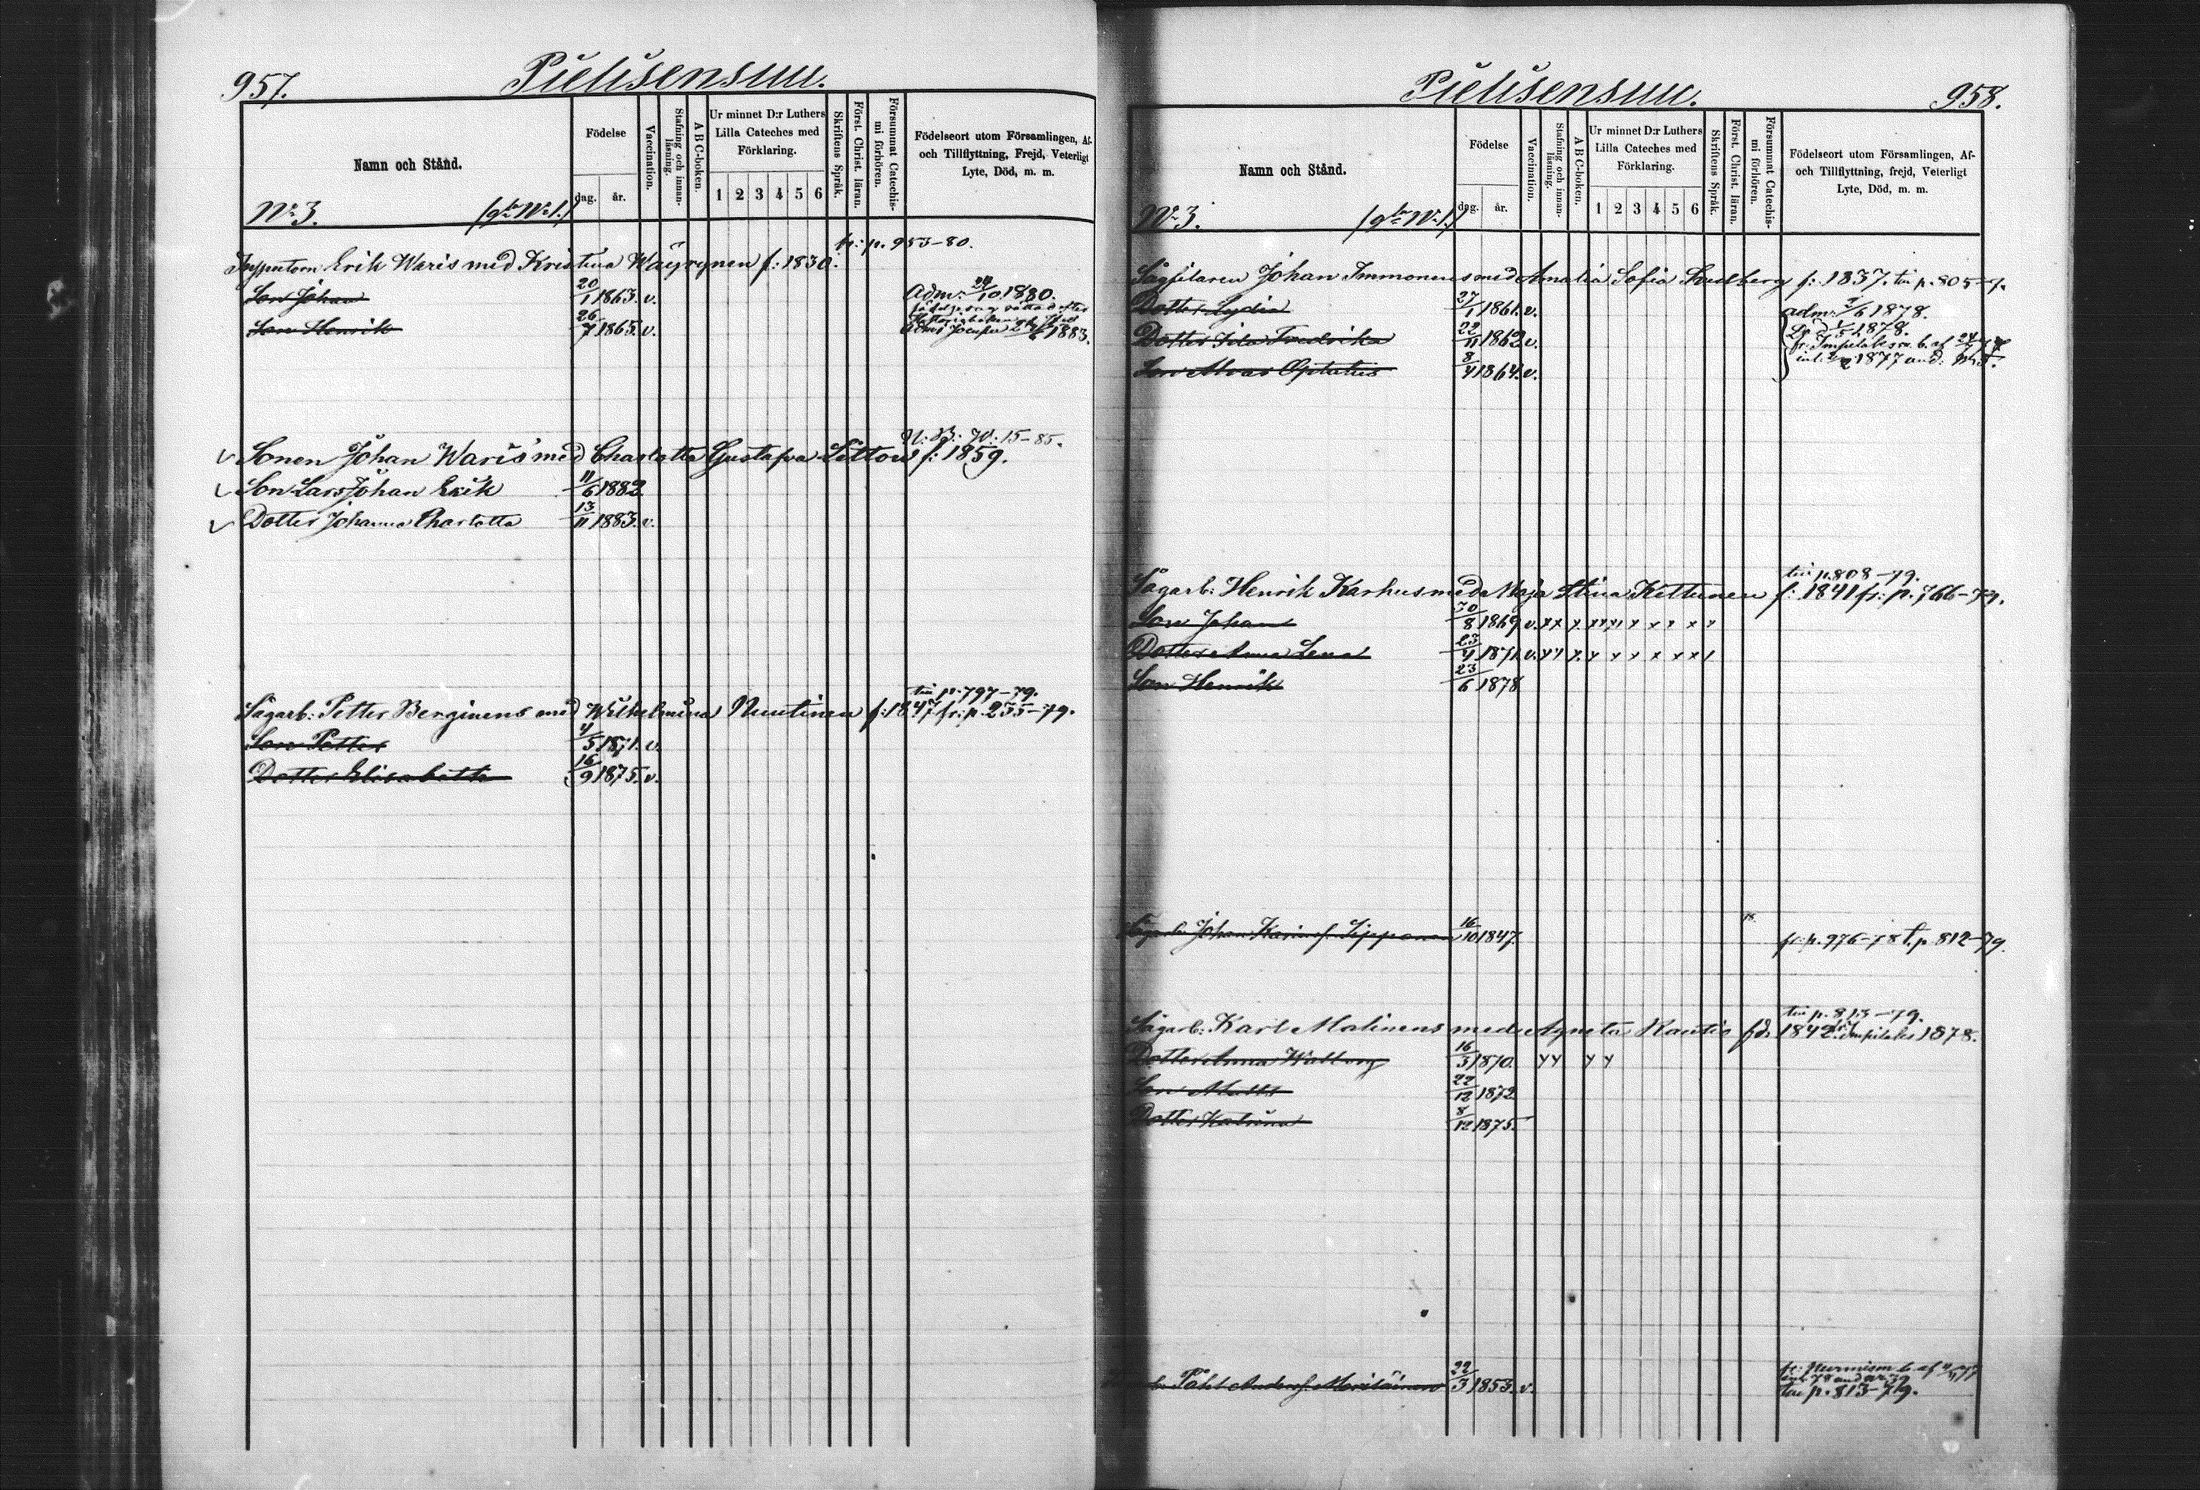 957.
Pielisensuu.
Namn och Stånd.
Födelse
dag. år.
Vaccination.
Stafning och innanläsning.
A B C-boken.
Ur minnet D:r Luthers
Lilla Cateches med
Förklaring.
1 2 3 4 5 6
Skriftens Språk.
Först. Christ. läran.
Försummat Catechismi förhören.
Födelseort utom Församlingen, Af-
och Tillflyttning, Frejd, Veterligt
Lyte, Död, m. m.
No 3.
fr: p. 953-80.
Inspektorn Erik Waris med Kristina Wäyrynen f: 1830.
Son Johan 20/1 1863. v. Adm: 24/10 1880.
Son Henrik 26/7 1865. v.
1883.
N: B: 15-85.
Sonen Johan Waris med Charlotta Gustafva f: 1859.
Son Lars Johan Erik 11/6 1882
Dotter Johanna Charlotta 13/11 1883. v.
till p. 797-79.
Sågarb: Petter Berginens med Wilhelmina Nuutinen f: 1847 fr: p. 255-79.
Son Petter 4/5 1871. v.
Dotter Elisabeth 16/9 1875. v.
Pielisensuu.
958.
Namn och Stånd.
Födelse
dag. år.
Vaccination.
Stafning och innanläsning.
A B C-boken.
Ur minnet D:r Luthers
Lilla Cateches med
Förklaring.
1 2 3 4 5 6
Skriftens Språk.
Först. Christ. läran.
Försummat Catechismi förhören.
Födelseort utom Församlingen, Af-
och Tillflyttning, frejd, Veterligt
Lyte, Död, m. m.
No 3.
Sågfilaren Johan Immonens med Amalia Sofia f: 1837. till p. 805-7.
Dotter Lydia 27/1 1861. v. adm: 1878.
Dotter Ida Fredrika 22/11 1862 v. 1878.
Son Alvar Optatus 8/4 1864. v. 1877
till p. 808-79.
Sågarb: Henrik Karhus med Maja Stina Kettunen f: 1841 fr: p. 766-79.
Son Johan 30/8 1869. v. x x x x x x x x x x x
Dotter Anna Lena 23/4 1871. v. x x x x x x x x x x
Son Henrik 23/6 1878
Sågarb: Johan Karins. Sipponen 16/10 1847. fr: p. 976-78 t. p. 812-79.
till p. 813-79.
Sågarb: Karl Malinens med Agneta Rautio föd 1842 Impilaks 1878.
Dotter Anna Walborg 16/3 1870. x x x x
Son Matts 22/12 1872
Dotter Katrina 8/12 1875.
Påhl Andersf. Meriläinen 22/3 1853. v. fr: Nurmis
till p. 813-79.